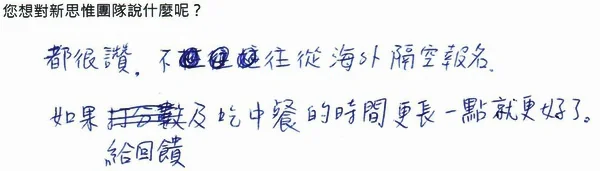 您想對新思惟團隊說什麼呢？
都很讚，不枉從海外隔空報名。
如果給回饋及吃中餐的時間更長一點就更好了。